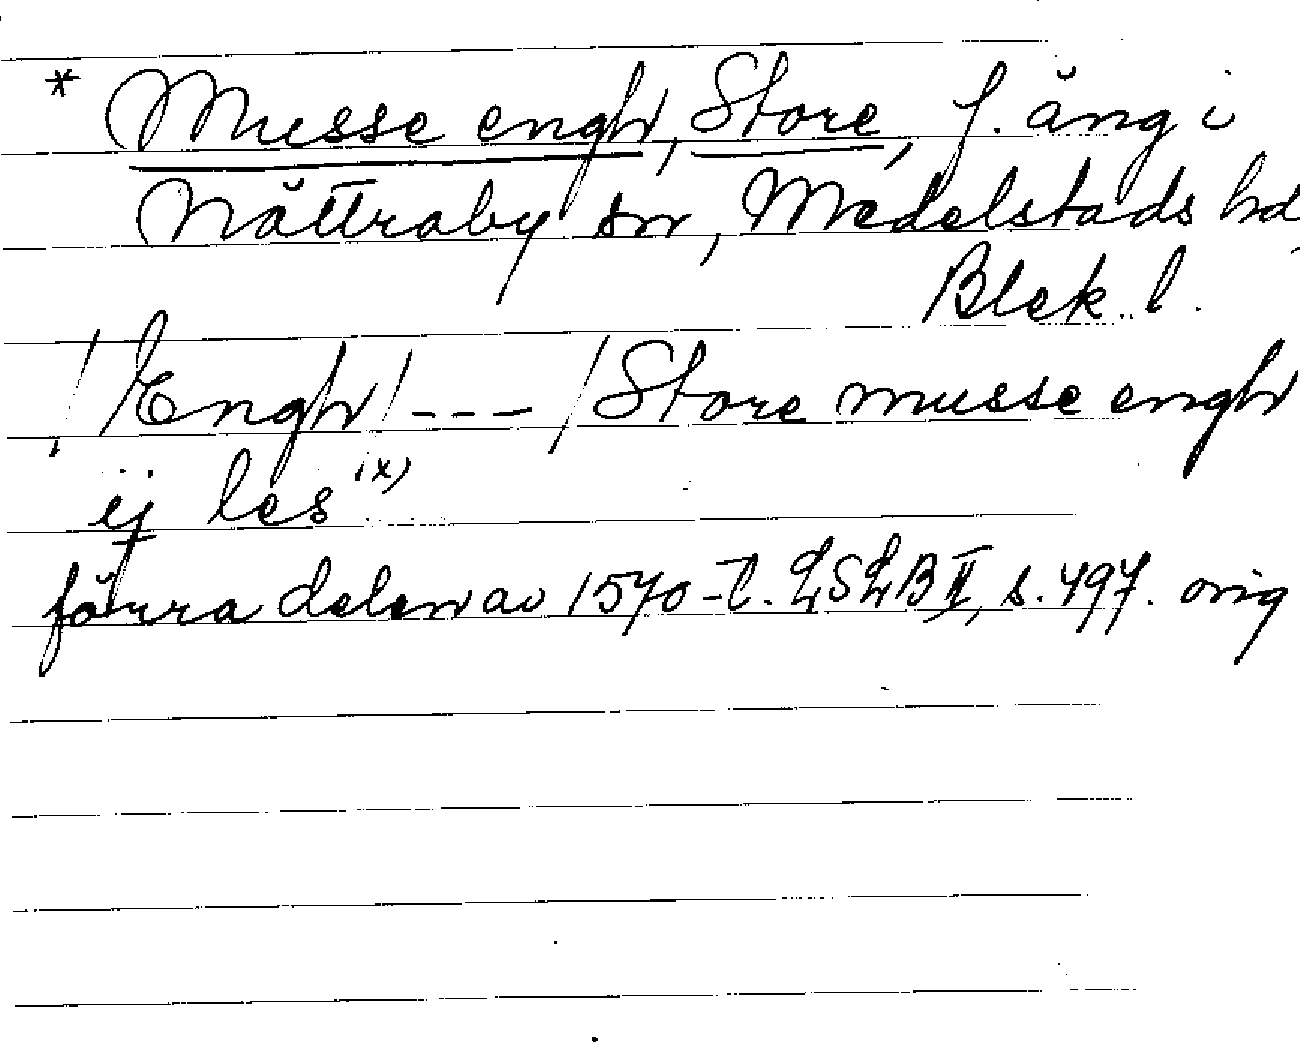 * Musse engh, Store, f. äng i
Nättraby sn, Medelstads hd
Blek. l.
/Engh/ --- /Store musse engh
ij les (x)
förra delen av 1570-t. LSLB II, s. 497. orig